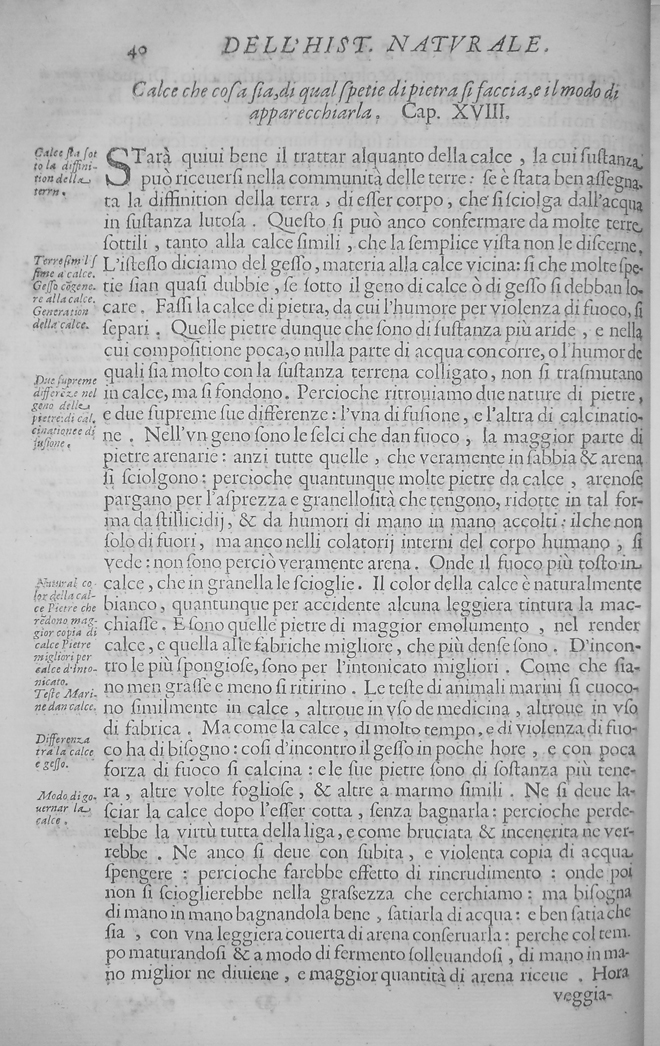 40
DELL'HIST. NATVRALE.
Calce che coſa ſia, di qual ſpetie di pietra ſi faccia, e il modo di
apparecchiarla. Cap. XVIII.
Calce ſta ſot
to la diffini-
tion della
terra.
STarà quiui bene il trattar alquanto della calce, la cui ſuſtanza,
può riceuerſi nella communità delle terre: ſe è ſtata ben aſſegna-
ta la diffinition della terra, di eſſer corpo, che ſi ſciolga dall'acqua
in ſuſtanza lutoſa. Queſto ſi può anco confermare da molte terre
ſottili, tanto alla calce ſimili, che la ſemplice viſta non le diſcerne.
Terre ſimiliſ
ſime a calce.
Geſſo cõgene-
re alla calce.
Generation
della calce.
L'iſteſſo diciamo del geſſo, materia alla calce vicina: ſi che molte ſpe-
tie ſian quaſi dubbie, ſe ſotto il geno di calce ò di geſſo ſi debban lo-
care. Faſſi la calce di pietra, da cui l'humore per violenza di fuoco, ſi
ſepari. Quelle pietre dunque che ſono di ſuſtanza più aride, e nella
cui compoſitione poca, o nulla parte di acqua concorre, o l'humor de
quali ſia molto con la ſuſtanza terrena colligato, non ſi traſmutano
Due ſupreme
differẽze nel
geno delle
pietre: di cal.
cinatione e di
fuſione.
in calce, ma ſi fondono. Percioche ritrouiamo due nature di pietre,
e due ſupreme ſue differenze: l'vna di fuſione, e l'altra di calcinatio-
ne. Nell'vn geno ſono le ſelci che dan fuoco, la maggior parte di
pietre arenarie: anzi tutte quelle, che veramente in ſabbia & arena
ſi ſciolgono: percioche quantunque molte pietre da calce, arenoſe
pargano per l'aſprezza e granelloſità che tengono, ridotte in tal for-
ma da ſtillicidij, & da humori di mano in mano accolti: il che non
ſolo di fuori, ma anco nelli colatorij interni del corpo humano, ſi
vede: non ſono perciò veramente arena. Onde il fuoco più toſto in
Natural co
lor della cal-
ce Pietre che
rẽdono mag-
gior copia di
calce Pietre
migliori per
calce d'into-
nicato.
Teſte Mari-
ne dan calce.
calce, che in granella le ſcioglie. Il color della calce è naturalmente
bianco, quantunque per accidente alcuna leggiera tintura la mac-
chiaſſe. E ſono quelle pietre di maggior emolumento, nel render
calce, e quella alle fabriche migliore, che più denſe ſono. D'incon-
tro le più ſpongioſe, ſono per l'intonicato migliori. Come che ſia-
no men graſſe e meno ſi ritirino. Le teſte di animali marini ſi cuoco-
no ſimilmente in calce, altroue in vſo de medicina, altroue in vſo
di fabrica. Ma come la calce, di molto tempo, e di violenza di fuo-
Differenza
tra la calce
e geſſo.
co ha di biſogno: coſi d'incontro il geſſo in poche hore, e con poca
forza di fuoco ſi calcina: e le ſue pietre ſono di ſoſtanza più tene-
Modo di go-
uernar la
calce.
ra, altre volte foglioſe, & altre a marmo ſimili. Ne ſi deue la-
ſciar la calce dopo l'eſſer cotta, ſenza bagnarla: percioche perde-
rebbe la virtù tutta della liga, e come bruciata & incenerita ne ver-
rebbe. Ne anco ſi deue con ſubita, e violenta copia di acqua
ſpengere: percioche farebbe effetto di rincrudimento: onde poi
non ſi ſcioglierebbe nella graſsezza che cerchiamo: ma biſogna
di mano in mano bagnandola bene, ſatiarla di acqua: e ben ſatia che
ſia, con vna leggiera couerta di arena conſeruarla: perche col tem-
po maturandoſi & a modo di fermento ſolleuandoſi, di mano in ma-
no miglior ne diuiene, e maggior quantità di arena riceue. Hora
veggia-